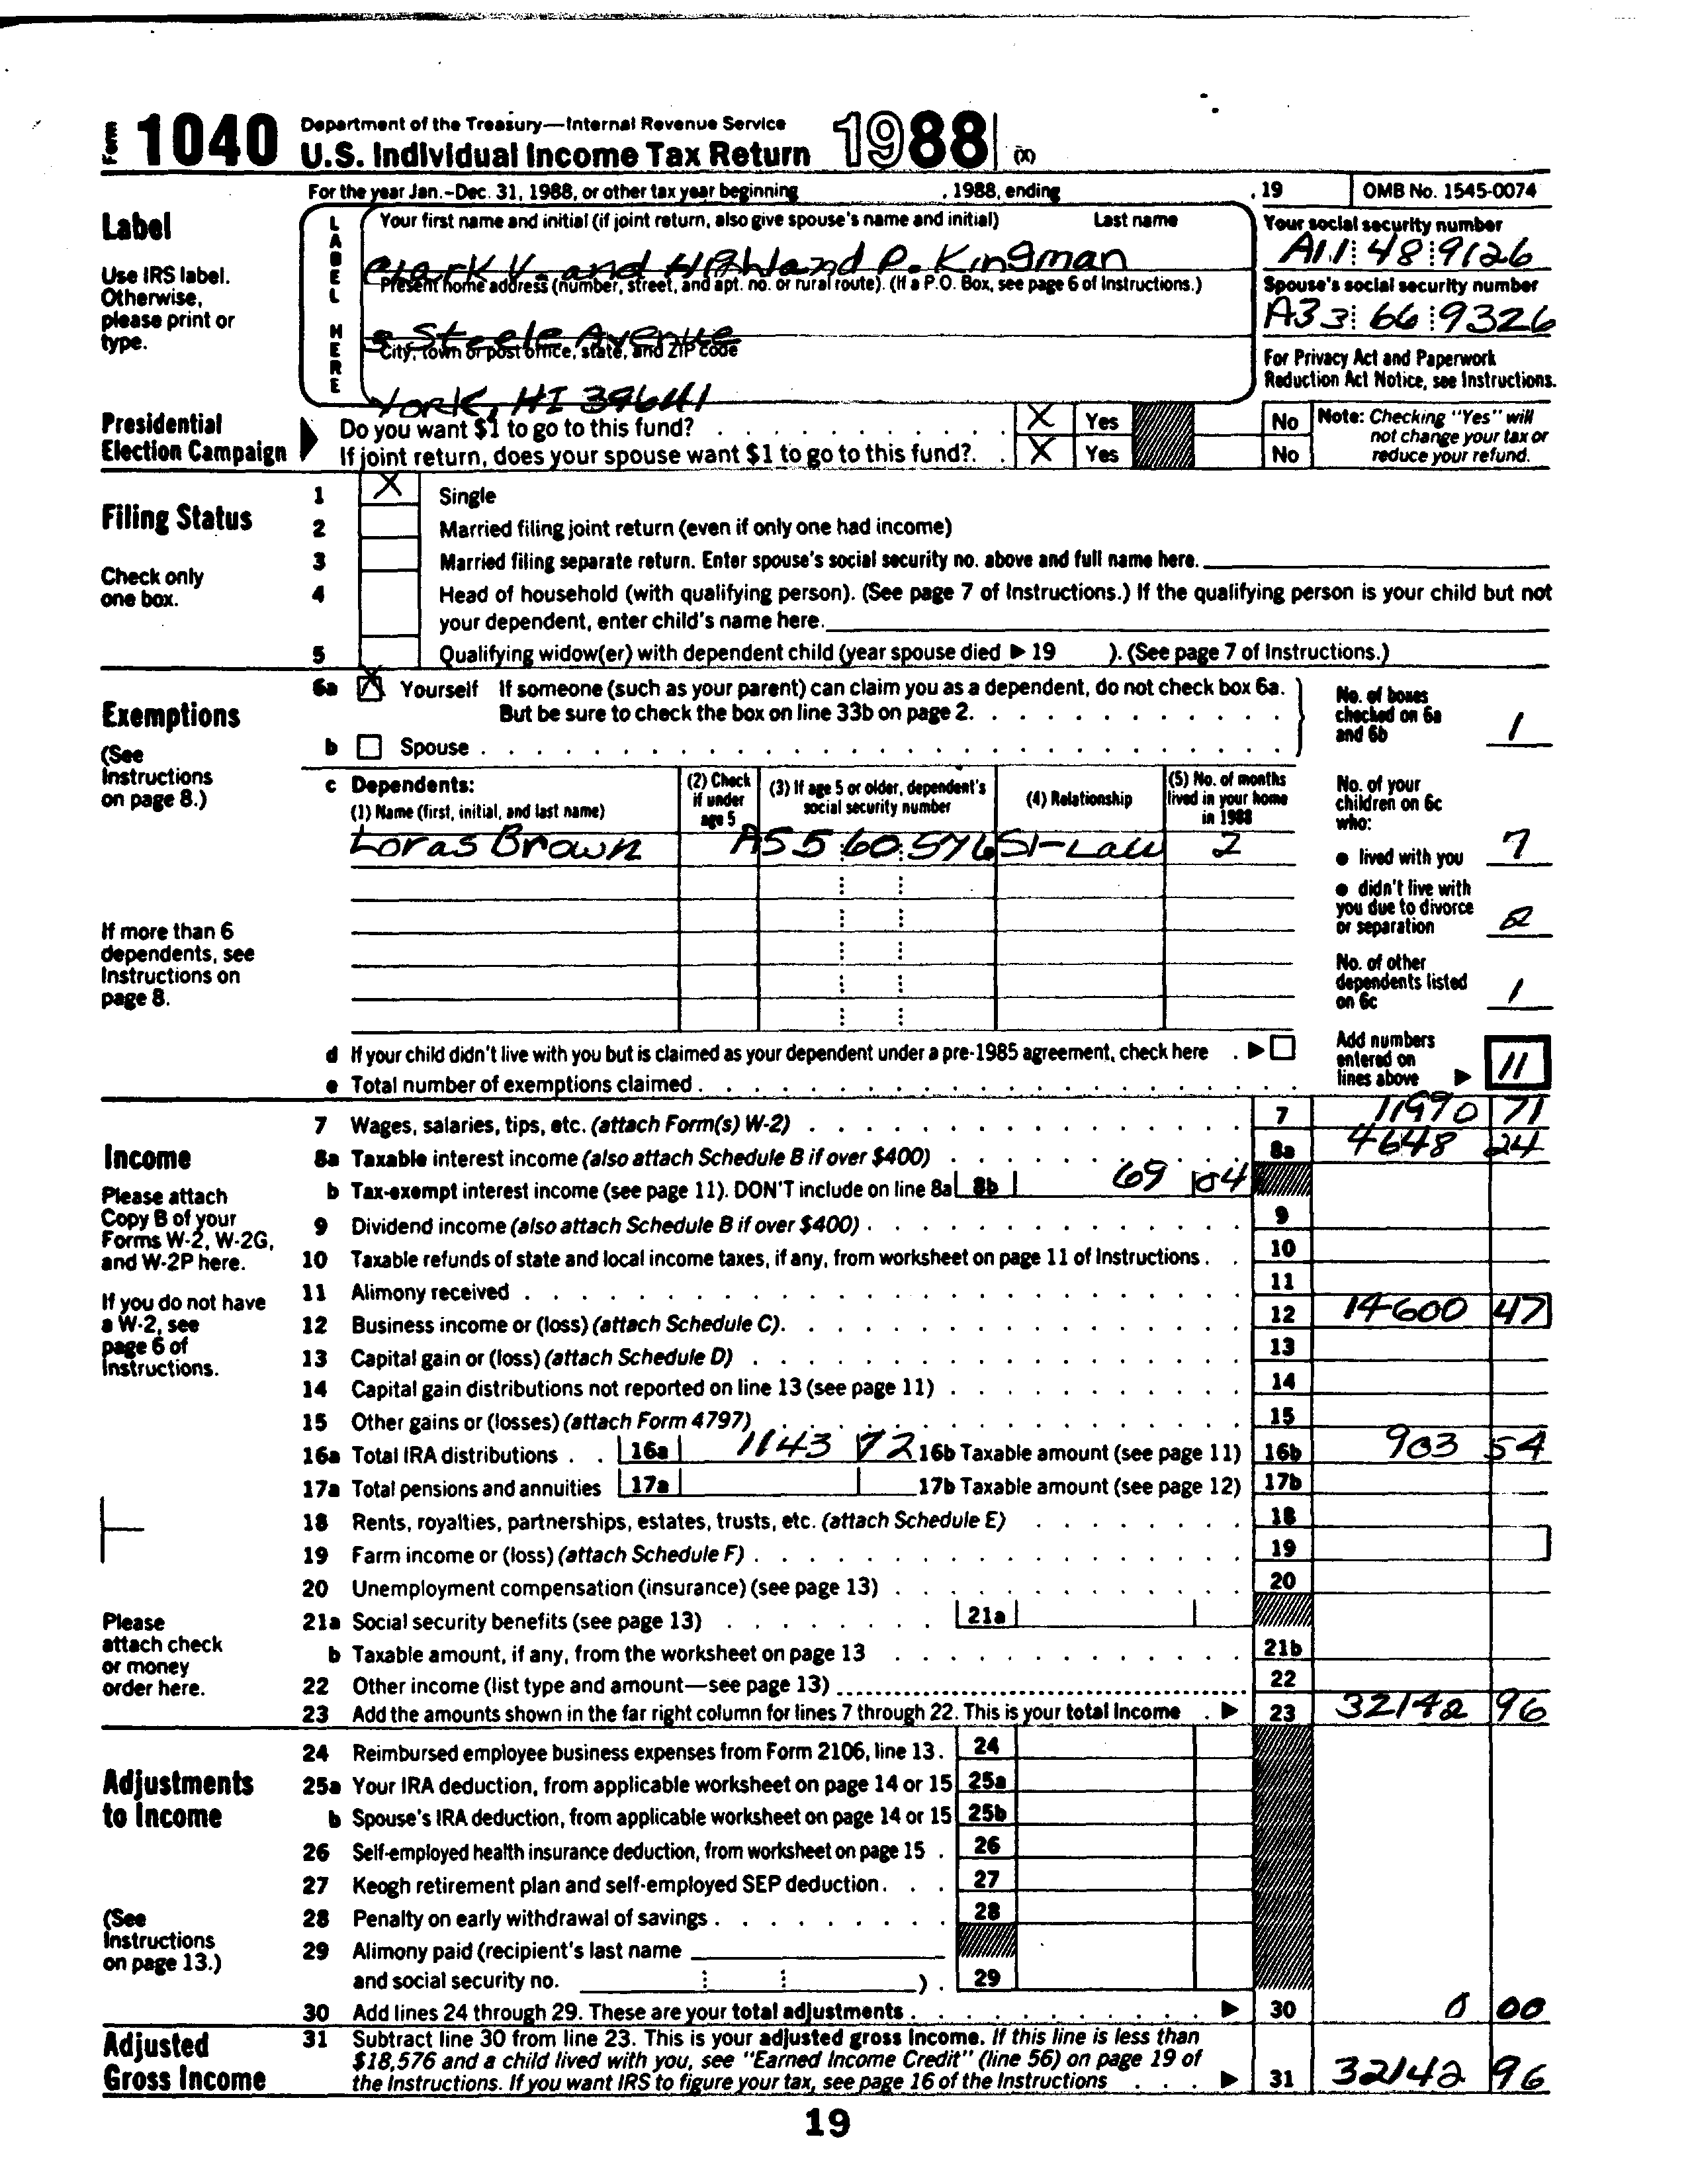 Form 1040 Department of the Treasury—Internal Revenue Service
U.S. Individual Income Tax Return 1988 (X)
For the year Jan.-Dec. 31, 1988, or other tax year beginning , 1988, ending , 19 OMB No. 1545-0074
Label
Use IRS label. Otherwise, please print or type.
LABEL HERE
Your first name and initial (if joint return, also give spouse's name and initial) Last name
Clark V. and Highland P. Kingman
Your social security number
A11 48 9126
Present home address (number, street, and apt. no. or rural route). (If a P.O. Box, see page 6 of Instructions.)
3 Steele Avenue
Spouse's social security number
A33 66 9326
City, town or post office, state, and ZIP code
York, HI 39641
For Privacy Act and Paperwork Reduction Act Notice, see Instructions.
Presidential Election Campaign
Do you want $1 to go to this fund? X Yes No
If joint return, does your spouse want $1 to go to this fund?. X Yes No
Note: Checking "Yes" will not change your tax or reduce your refund.
Filing Status
Check only one box.
1 X Single
2 Married filing joint return (even if only one had income)
3 Married filing separate return. Enter spouse's social security no. above and full name here.
4 Head of household (with qualifying person). (See page 7 of Instructions.) If the qualifying person is your child but not
your dependent, enter child's name here.
5 Qualifying widow(er) with dependent child (year spouse died ▶ 19 ). (See page 7 of Instructions.)
Exemptions
(See Instructions on page 8.)
6a X Yourself If someone (such as your parent) can claim you as a dependent, do not check box 6a.
But be sure to check the box on line 33b on page 2.
b Spouse
No. of boxes checked on 6a and 6b 1
c Dependents:
(1) Name (first, initial, and last name)
(2) Check if under age 5
(3) If age 5 or older, dependent's social security number
(4) Relationship
(5) No. of months lived in your home in 1988
Loras Brown A55 60 576 SI-Law 2
No. of your children on 6c who:
● lived with you 7
● didn't live with you due to divorce or separation 2
No. of other dependents listed on 6c 1
If more than 6 dependents, see Instructions on page 8.
d If your child didn't live with you but is claimed as your dependent under a pre-1985 agreement, check here ▶
e Total number of exemptions claimed
Add numbers entered on lines above ▶ 11
Income
Please attach Copy B of your Forms W-2, W-2G, and W-2P here.
If you do not have a W-2, see page 6 of Instructions.
Please attach check or money order here.
7 Wages, salaries, tips, etc. (attach Form(s) W-2) 7 11990 71
8a Taxable interest income (also attach Schedule B if over $400) 8a 4648 24
b Tax-exempt interest income (see page 11). DON'T include on line 8a 8b 69 04
9 Dividend income (also attach Schedule B if over $400) 9
10 Taxable refunds of state and local income taxes, if any, from worksheet on page 11 of Instructions 10
11 Alimony received 11
12 Business income or (loss) (attach Schedule C). 12 14600 47
13 Capital gain or (loss) (attach Schedule D) 13
14 Capital gain distributions not reported on line 13 (see page 11) 14
15 Other gains or (losses) (attach Form 4797) 15
16a Total IRA distributions 16a 1143 72 16b Taxable amount (see page 11) 16b 903 54
17a Total pensions and annuities 17a 17b Taxable amount (see page 12) 17b
18 Rents, royalties, partnerships, estates, trusts, etc. (attach Schedule E) 18
19 Farm income or (loss) (attach Schedule F) 19
20 Unemployment compensation (insurance) (see page 13) 20
21a Social security benefits (see page 13) 21a
b Taxable amount, if any, from the worksheet on page 13 21b
22 Other income (list type and amount—see page 13) 22
23 Add the amounts shown in the far right column for lines 7 through 22. This is your total income ▶ 23 32142 96
Adjustments to Income
(See Instructions on page 13.)
24 Reimbursed employee business expenses from Form 2106, line 13. 24
25a Your IRA deduction, from applicable worksheet on page 14 or 15 25a
b Spouse's IRA deduction, from applicable worksheet on page 14 or 15 25b
26 Self-employed health insurance deduction, from worksheet on page 15 26
27 Keogh retirement plan and self-employed SEP deduction 27
28 Penalty on early withdrawal of savings 28
29 Alimony paid (recipient's last name
and social security no. ) 29
30 Add lines 24 through 29. These are your total adjustments ▶ 30 0 00
Adjusted Gross Income
31 Subtract line 30 from line 23. This is your adjusted gross income. If this line is less than
$18,576 and a child lived with you, see "Earned Income Credit" (line 56) on page 19 of
the Instructions. If you want IRS to figure your tax, see page 16 of the Instructions ▶ 31 32142 96
19